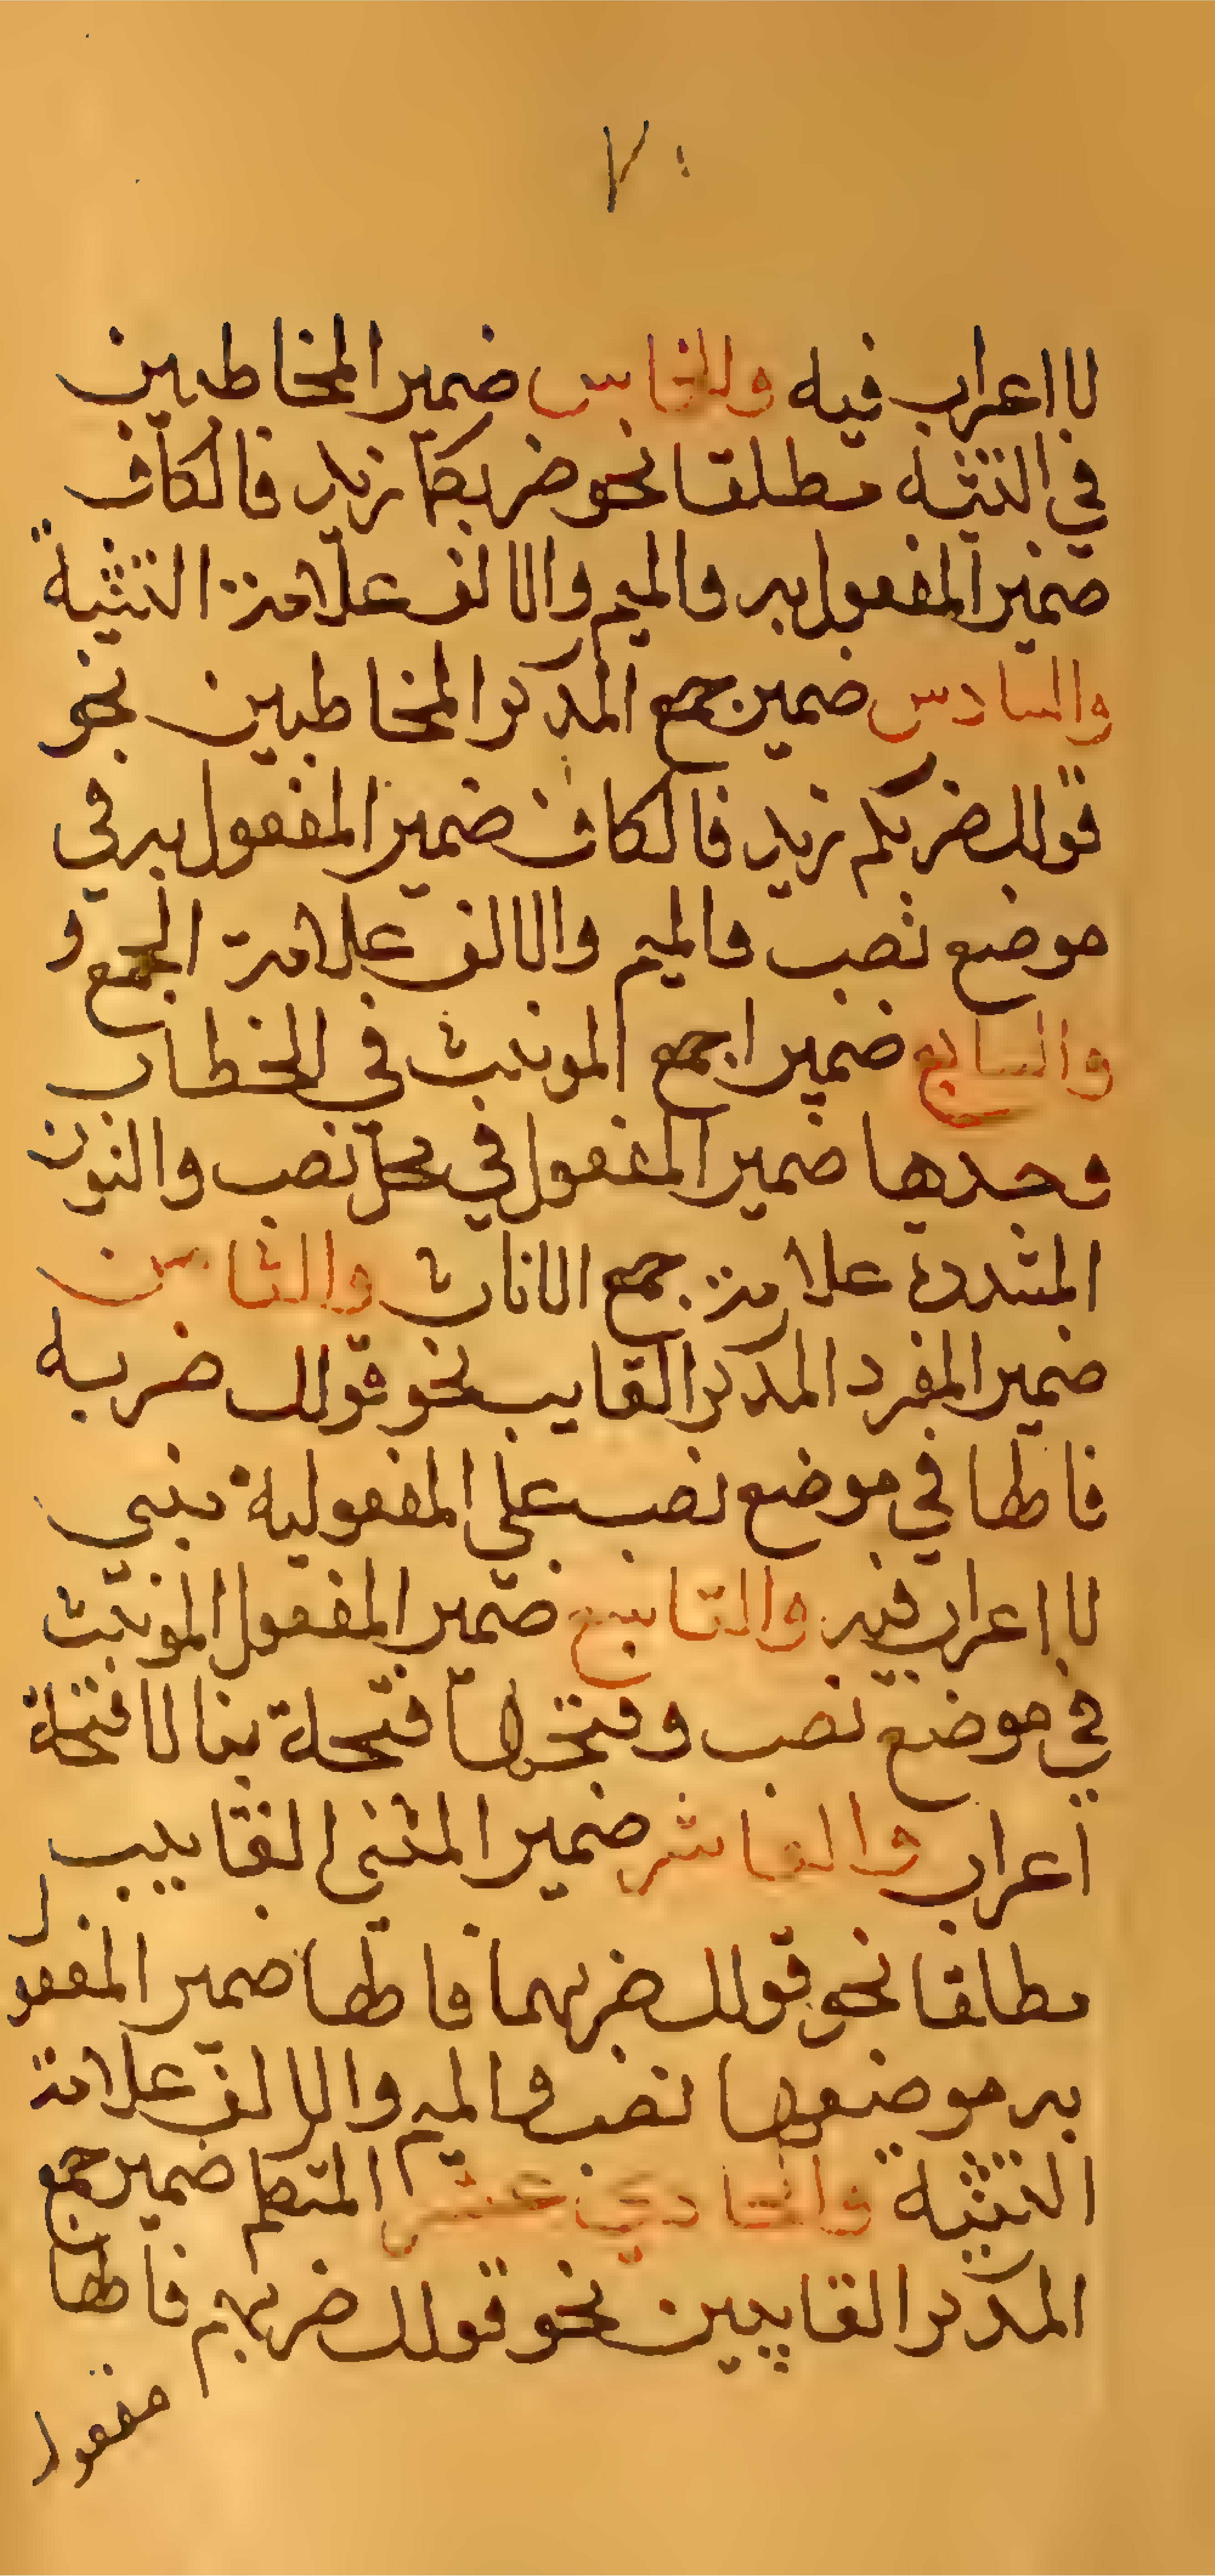 ٧٠
لا اعراب فيه والخامس ضمير المخاطبين
في التثنية مطلقا نحو ضربكما زيد فالكاف
ضمير المفعول به والميم والالف علامة التثنية
والسادس ضمير جمع المذكر المخاطبين نحو
قولك ضربكم زيد فالكاف ضمير المفعول به في
موضع نصب والميم والالف علامة الجمع و
والسابع ضمير اجمع المونث في الخطاب
وحدها ضمير المفعول في محل نصب والنون
المشددة علامة جمع الاناث والثامن
ضمير المفرد المدكر الغايب نحو قولك ضربه
فالها في موضع نصب على المفعولية مبني
لا اعراب فيه والتاسع ضمير المفعول المونث
في موضع نصب وفتح الها فتحة بنا لا فتحة
اعراب والعاشر ضمير المثنى الغايب
مطلقا نحو قولك ضربهما فالها ضمير المفعول
به موضعها نصب والميم والالف علامة
التثنية والحادي عشر المتكلم ضمير جمع
المدكر الغايبين نحو قولك ضربهم فالها
مفعول